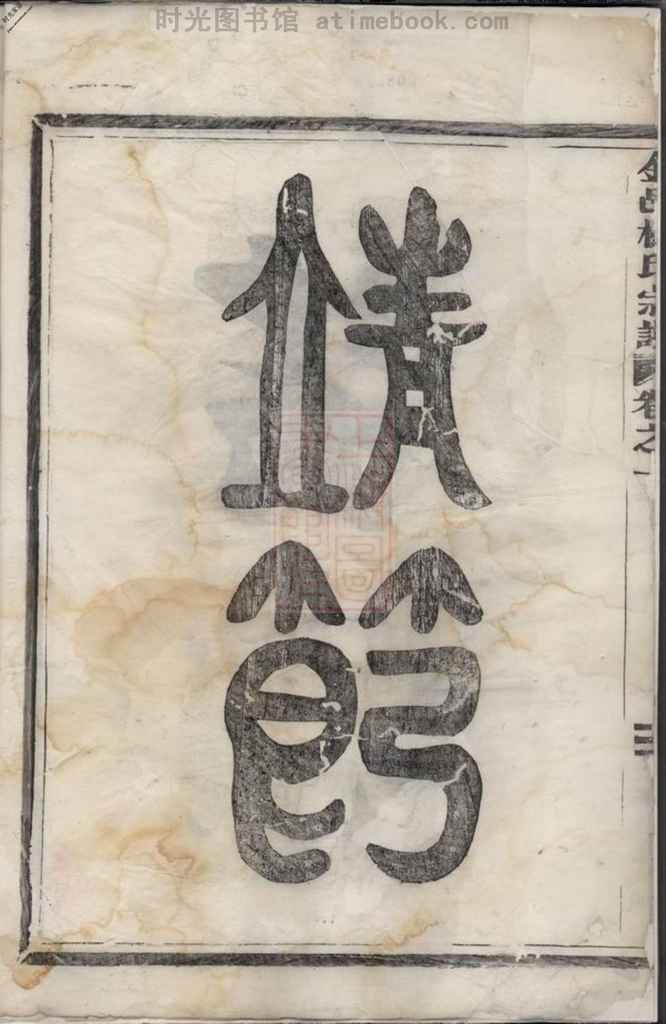 时光图书馆 atimebook.com
靖節
邑氏宗譜卷之一
三